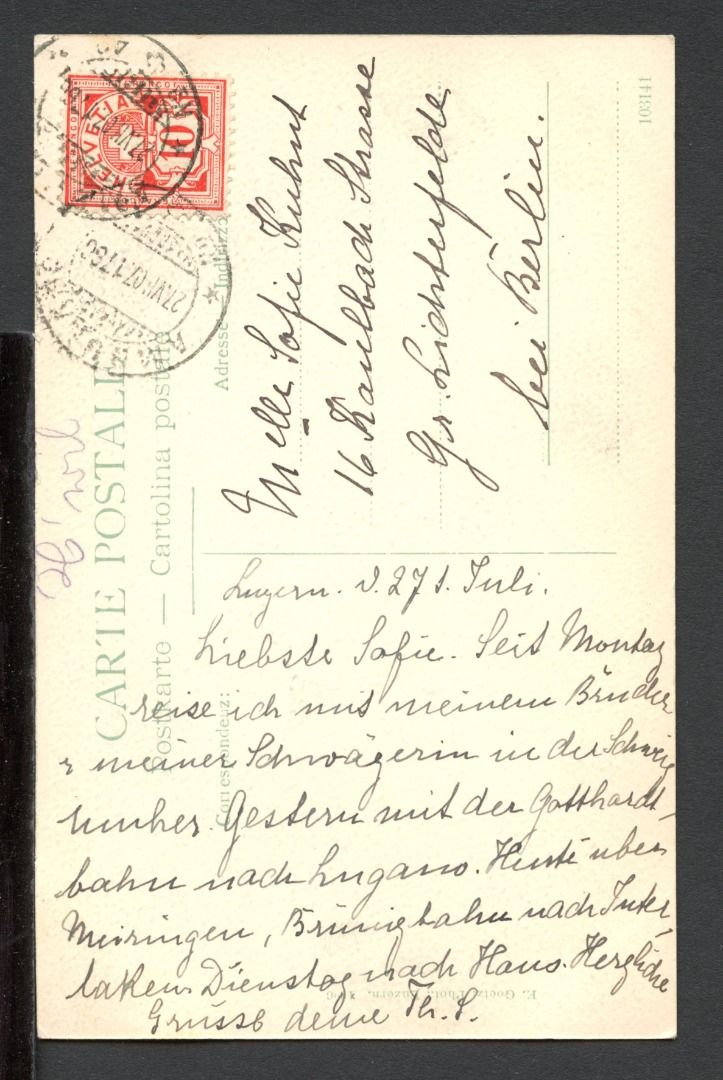 CARTE POSTALE
Postkarte — Cartolina postale
Correspondenz:
Adresse — Indirizzo
103141
HELVETIA
10
27.VII.07.
Melle Sofie Kuhnt
16 Kaulbach Strasse
Gr. Lichterfelde
bei Berlin.
Luzern. d. 27 t. Juli.
Liebste Sofie. Seit Montag
reise ich mit meinem Bruder
u meiner Schwägerin in der Schweiz
umher. Gestern mit der Gotthardt-
bahn nach Lugano. Heute über
Meiringen, Brünigbahn nach Inter-
laken. Dienstag nach Haus. Herzliche
Grüsse deine Th. S.
E. Goetz, Phot., Luzern.